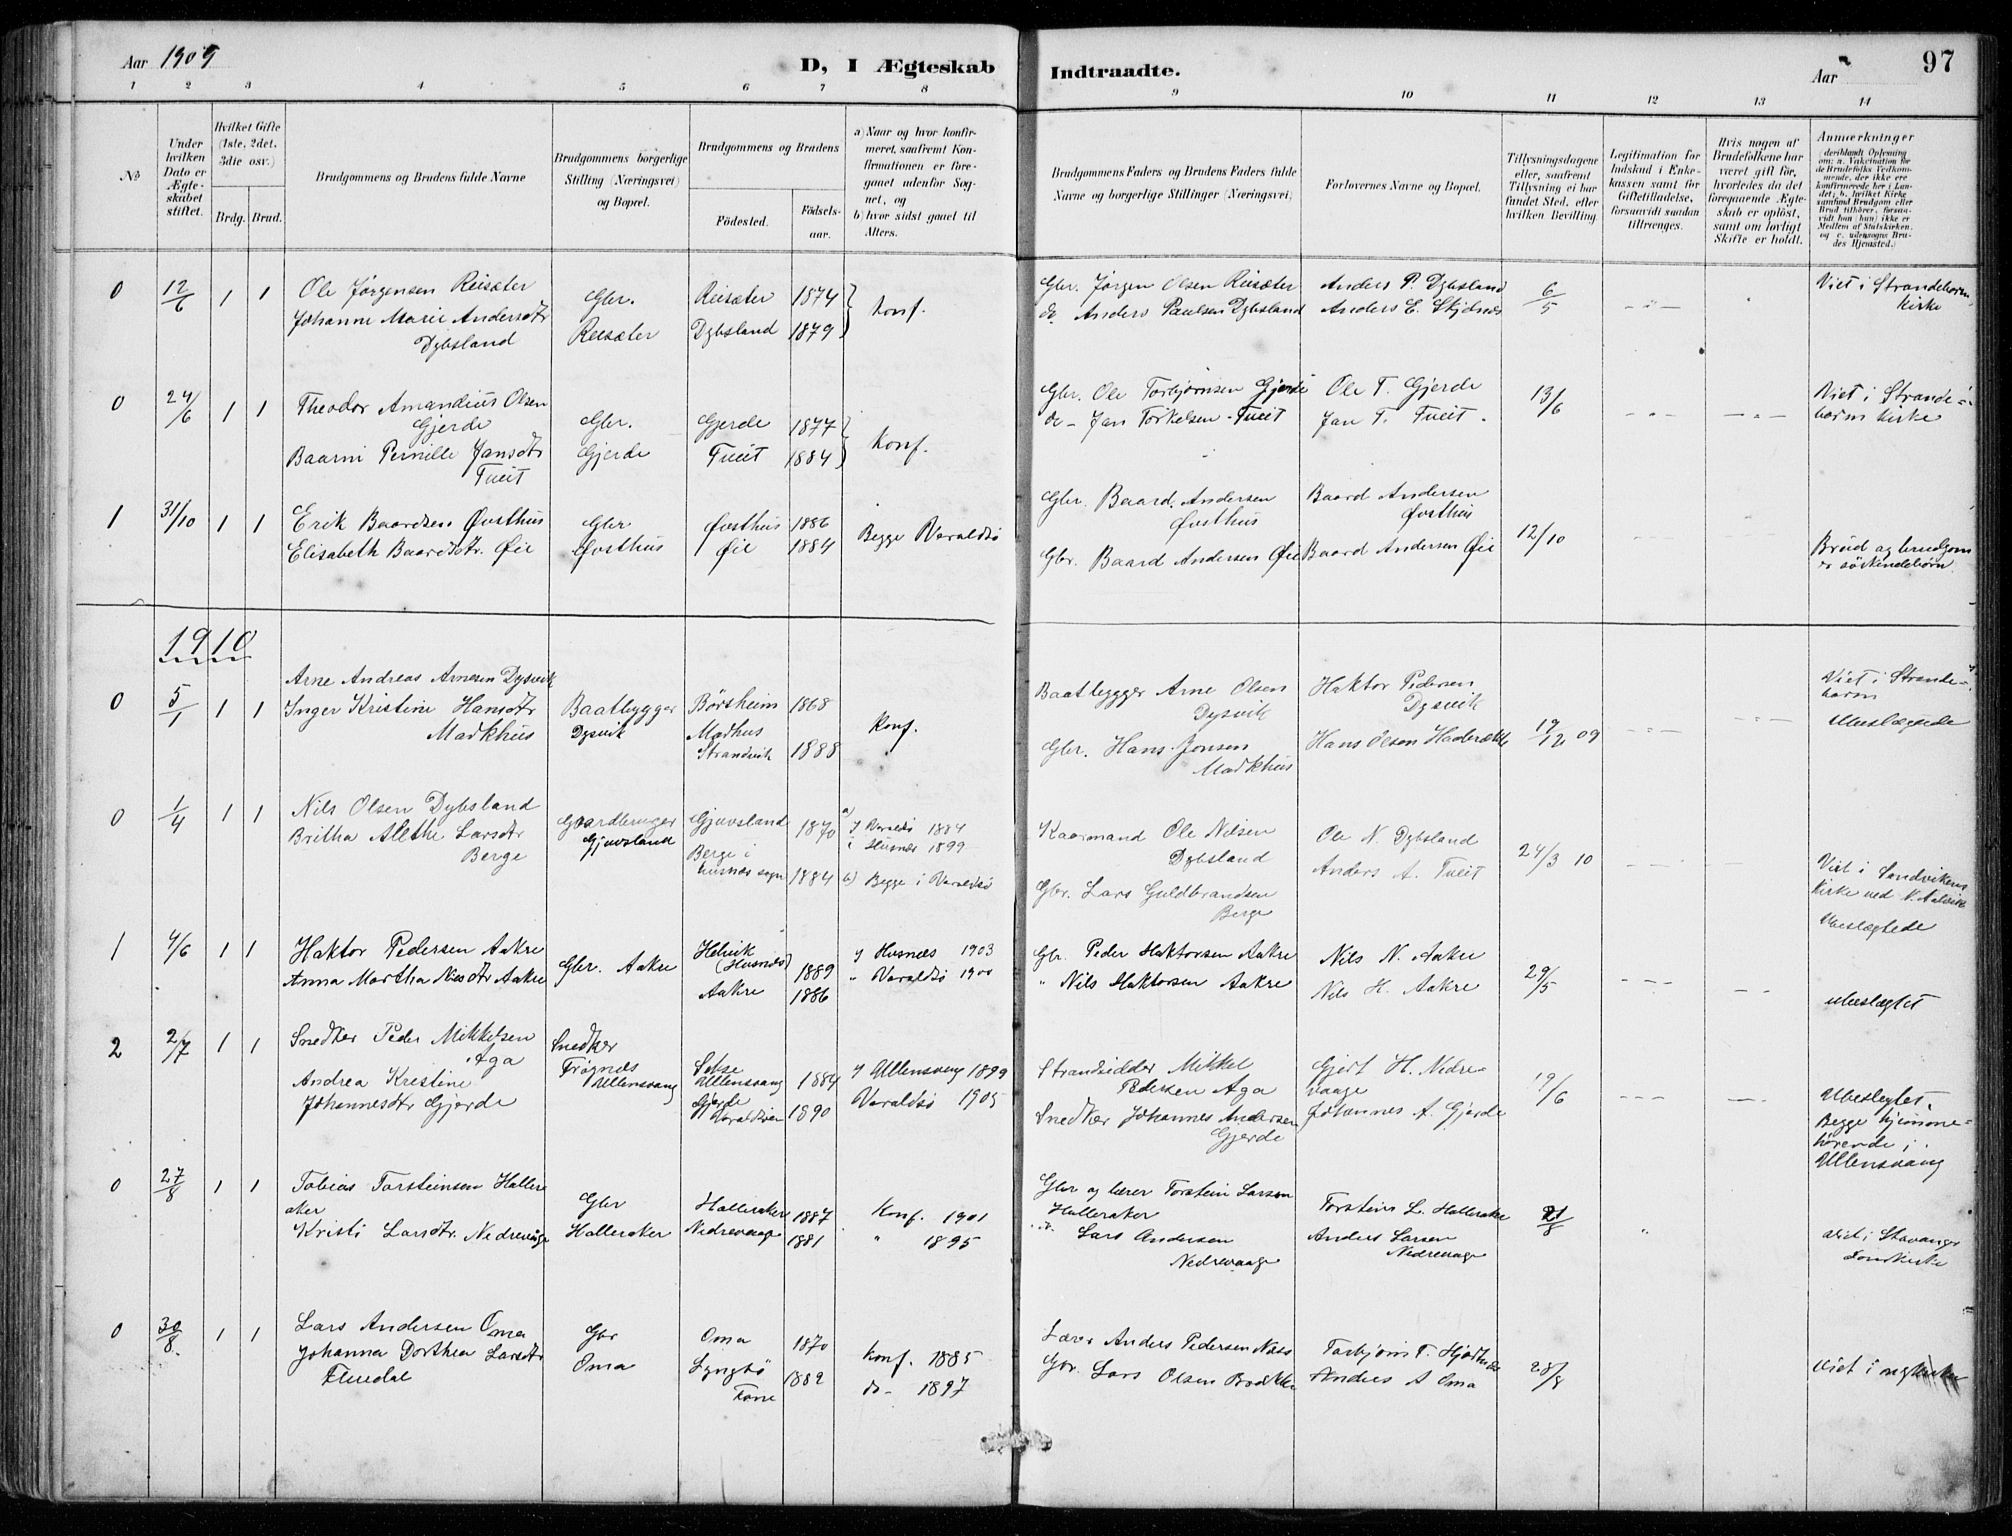 Aar 1909
D, I Ægteskab
Indtraadte.
Aar
97
1 2 3 4 5 6 7 8
9 10 11 12 13 14
No
Under hvilken Dato er Ægteskabet stiftet.
Hvilket Gifte (1ste, 2det, 3die osv.)
Brdg. Brud.
Brudgommens og Brudens fulde Navne
Brudgommens borgerlige Stilling (Næringsvei) og Bopæl.
Brudgommens og Brudens
Födested.
Födselsaar.
a) Naar og hvor konfirmeret, saafremt Konfirmationen er foregaaet udenfor Sognet, og
b) hvor sidst gaaet til Alters.
Brudgommens Faders og Brudens Faders fulde Navne og borgerlige Stillinger (Næringsvei)
Forlovernes Navne og Bopæl.
Tillysningsdagene eller, saafremt Tillysning ei har fundet Sted, efter hvilken Bevilling.
Legitimation for Indskud i Enkekassen samt for Giftetilladelse, forsaavidt saadan tiltrænges.
Hvis nogen af Brudefolkene har været gift før, hvorledes da det foregaaende Ægteskab er oplöst, samt om lovligt Skifte er holdt.
Anmærkninger
0 12/6 1 1 Ole Jørgensen Reisæter Gbr. Reisæter 1874 Konf.
Johanne Marie Andersdtr Reisæter Dybsland 1879
Dybsland
Gbr. Jørgen Olsen Reisæter Anders P. Dybsland 6/5 Viet i Strandebarm
do Anders Paulsen Dybsland Anders E. Kirke
0 24/6 1 1 Theodor Amandius Olsen Gbr. Gjerde 1877 Konf.
Gjerde
Baarni Pernille Jansdtr Gjerde Tueit 1884
Tueit
Gbr. Ole Torbjørnsen Gjerde Ole T. Gjerde 13/6 Viet i Strande-
do - Jan Torkelsen Tueit Jan T. Tueit barm Kirke
1 31/10 1 1 Erik Baardsen Øvsthus Gbr Øvsthus 1886 Begge Varaldsö
Elisabeth Baardsdtr. Øie Øvsthus Øie 1884
Gbr. Baard Andersen Baard Andersen
Øvsthus Øvsthus
Gbr. Baard Andersen Øie Baard Andersen Øie 12/10 Brud og brudgom
er söskindebörn
1910
0 5/1 1 1 Arne Andreas Arnesen Dysvik
Inger Kristine Hansdtr Baatbygger Börsheim 1868 Konf.
Madkhus Dysvik Madhus
Strandvik 1888
Baatbygger Arne Olsen Haktor Pedersen Viet i Strande-
Dysvik Dysvik barm
Gbr. Hans Jonsen Hans Olsen 19/12 09 Ubeslægtede
Madkhus
0 1/4 1 1 Nils Olsen Dybsland Gaardbruger Gjuvsland 1870 a) I Varaldsö 1884
Britha Alethe Larsdtr Gjuvsland Berge i i Husnes 1899
Berge husnæs sogn 1884 b) Begge i Varaldsö
Kaarmand Ole Nilsen Ole N. Dybsland
Dybsland Anders A. Tueit 24/3 10 Viet i Sandvikens
Gbr. Lars Guldbrandsen Kirke ved
Berge Ubeslægtede
1 4/6 1 1 Haktor Pedersen Aakre Gbr. Aakre Helvik (Husnæs) 1889 I Husnæs 1903
Anna Martha Nilsdtr Aakre Aakre 1886 " Varaldsö 1900
Gbr. Peder Haktorsen Aakre Nils N. Aakre 29/5 ubeslægtet
" Nils Haktorsen Aakre Nils H. Aakre
2 2/7 1 1 Snedker Peder Mikkelsen Snedker
Aga
Andrea Kristine Ullensvang Ullensvang 1884 I Ullensvang 1899
Johannesdtr Gjerde Gjerde 1890 Varaldsö 1905
Strandsidder Mikkel Gjert H. Nedre-
Pedersen Aga vaage 19/6 Ubeslegtet.
Snedker Johannes Andersen Johannes A. Gjerde Begge hjemme-
Gjerde hörende i
Ullensvang
0 27/8 1 1 Tobias Torsteinsen Hallere Gbr Halleraker 1887 Konf. 1901
aker
Kristi Larsdtr. Nedrevaage Halleraker Nedrevaage 1881 " 1895
Gbr og lærer Torstein Larsen Torstein L. Halleraker
Halleraker Anders Larsen 21/8 Viet i Stavanger
Lars Andersen Nedrevaage Domkirke
Nedrevaage
0 30/8. 1 1 Lars Andersen Oma Gbr Oma 1870 Konf. 1885
Johanna Dorthea Larsdtr Oma Lyngbö 1882 do - 1897
Lærer Anders Pedersen Torbjörn T. 28/8 Viet i
Gbr. Lars Olsen Anders A Oma